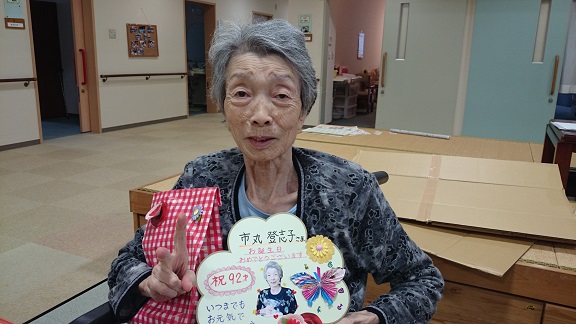 市丸 登志子さま
お誕生日
おめでとうございます
祝92才
いつまでも
お元気で